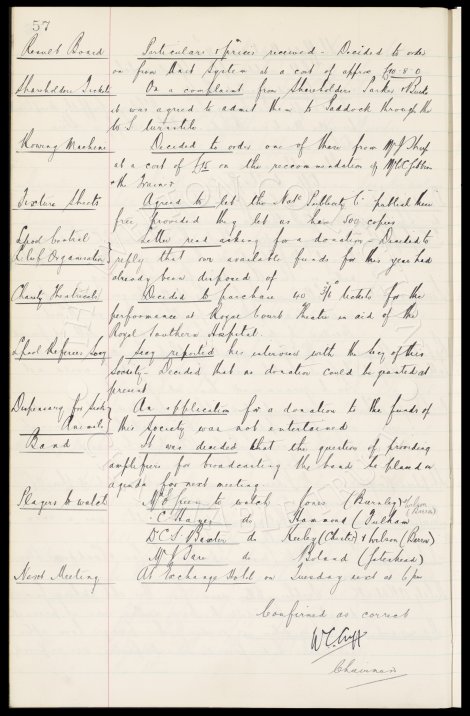 57
Result Board Particulars & prices received - Decided to order
on from Unit System at a cost of approx £10-8-0
Shareholders Tickets On a complaint from Shareholders Parker &
it was agreed to admit them to Paddock through the
W S turnstile
Mowing Machine Decided to order one of these from Mr J
at a cost of on the reccommendation of Mr
& the Trainer
Fixture Sheets Agreed to let the Natl Publicity Co publish them
free, provided they let us have 500 copies
Lpool Central Letter read asking for a donation - Decided to
Club Organisation reply that our available funds for this year had
already been disposed of
Charity Theatricals Decided to purchase 40 2/6 tickets for the
performance at Royal Court Theatre in aid of the
Royal Southern Hospital.
Lpool Referees Socy Secy reported his interview with the Secy of this
Society - Decided that no donation could be granted at
present
Dispensary for Sick An application for a donation to the funds of
Animals this Society was not entertained
Band It was decided that the question of providing
amplifiers for broadcasting the band be placed on
agenda for next meeting.
Players to watch Mr Green to watch Jones (Burnley) & Wilson
(Barrow)
" C Hayes do Hammond (Fulham
Dr C S Baxter do Keeley (Chester) & Wilson (Barrow)
Mr do Boland (Gateshead)
Next Meeting At Exchange Hotel on Tuesday next at 6 pm
Confirmed as correct
W C Cuff
Chairman